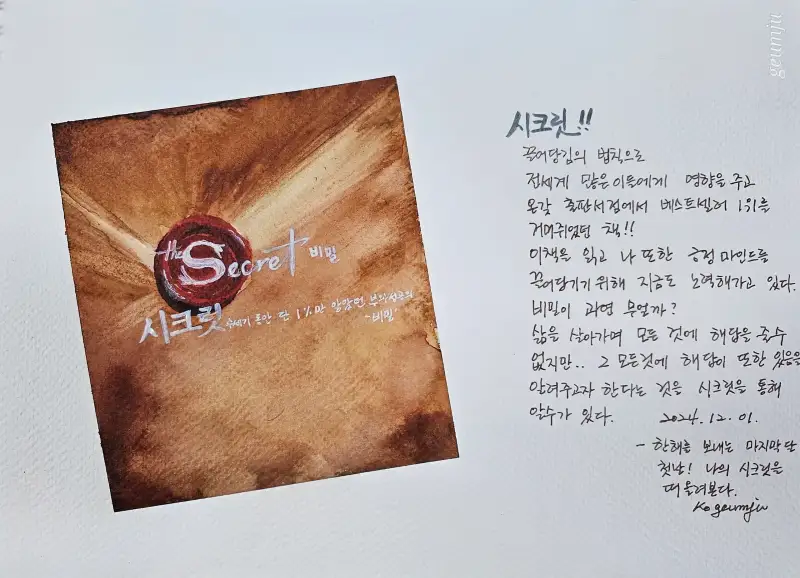 geumju
the Secret 비밀
시크릿 수세기 동안 단 1%만 알았던 부와 성공의
-비밀'
시크릿!!
끌어당김의 법칙으로
전세계 많은이들에게 영향을 주고
온갖 출판서점에서 베스트셀러 1위를
거머쥐었던 책!!
이책을 읽고 나 또한 긍정 마인드를
끌어당기기 위해 지금도 노력해가고 있다.
비밀이 과연 무얼까?
삶을 살아가며 모든 것에 해답을 줄수
없지만.. 그 모든것에 해답이 또한 있음을
알려주고자 한다는 것을 시크릿을 통해
알수가 있다. 2024.12.01.
- 한해를 보내는 마지막 단
첫날! 나의 시크릿을
떠올려본다.
Ko geumju